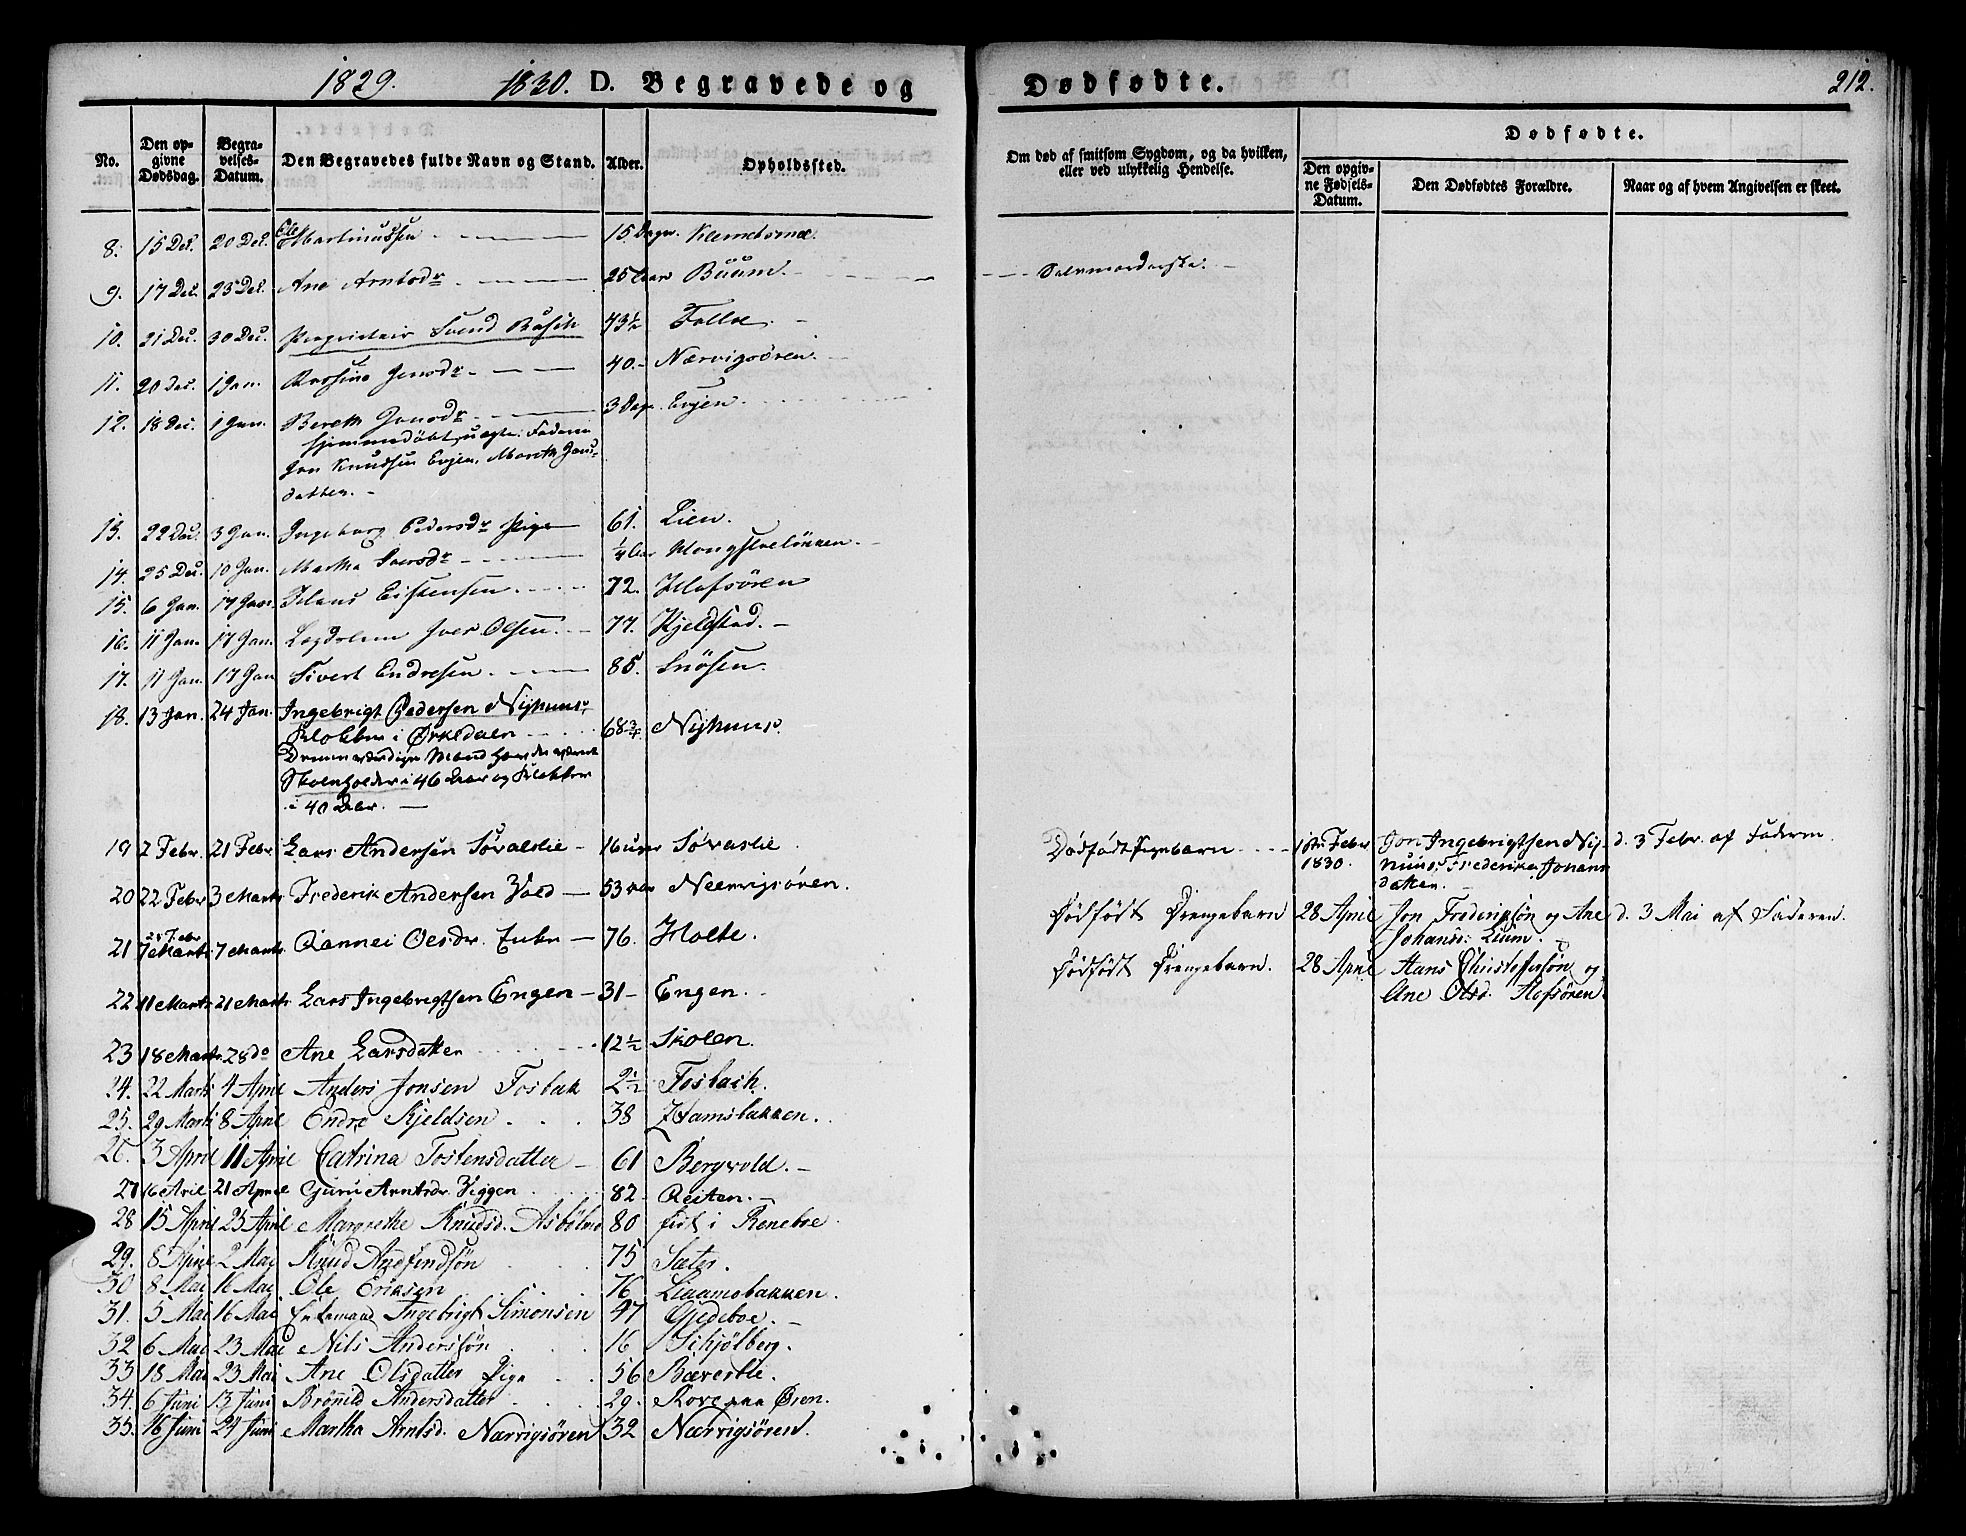 1829. 1830. D. Begravede og Dødfødte. 212.
No. Den opgivne Dødsdag. Begravelses-Datum. Den Begravedes fulde Navn og Stand. Alder. Opholdssted. Om død af smitsom Sygdom, og da hvilken, eller ved ulykkelig Hendelse.
Dødfødte.
Den opgivne Fødsels-Datum. Den Dødfødtes Forældre. Naar og af hvem Angivelsen er skeet.
8. 15 Dec. 20 Dec. Ole Martinussen 15 Dage.
9. 17 Dec. 25 Dec. Ane Arntsdr 25 Aar Buum. Selvmorderske.
10. 21 Dec. 30 Dec. Proprietair Svend Busch 43½ Folloe.
11. 20 Dec. 1 Jan. Jensdr 40. Nærvigsören.
12. 18 Dec. 1 Jan. Bereth Jonsdr 3 Dage Evjen.
hjemmedöbt, uægte: Fader
Jon Knudsen Evjen, Mareth Jons-
datter.
13. 22 Dec. 3 Jan. Ingeborg Pedersdr Pige 61. Lien.
14. 25 Dec. 10 Jan. Martha Iversdr ¼ Aar
15. 6 Jan. 17 Jan. Hans Eistensen 72. Hofsören
16. 11 Jan. 17 Jan. Lægdslem Iver Olsen. 77. Kjeldstad.
17. 11 Jan. 17 Jan Sivert Endresen 85. Snösen.
18. 13 Jan. 24 Jan. Ingebrigt Pedersen Nyhuus,
Klokker i Ørkedalen 68¾ Nyhuus.
Denne værdige Mand havde været
Skoleholder i 46 Aar og Klokker
i 40 Aar.
19 2 Febr. 21 Febr Lars Andersen Sövaslie 16 uger Sövaslie
Dödfödt Pigebarn 1ste Febr 1830. Jon Ingebrigtsen Ny-
huus, Frederika Johann
datter. d. 3 Febr. af Faderen
20 22 Febr 3 Marts Frederik Andersen Vold 53 Aar Neervigsören.
Dödfödt Drengebarn 28 April Jon Frederiksön og Ane
Johansd: Liium. d. 3 Mai af Faderen.
21 25 Febr 7 Marts Rannei Olsdr. 76. Holte.
Dödfödt Drengebarn. 28 April Hans Christophersön og
Ane Olsd. Hofsören.
22 11 Marts 21 Marts Lars Ingebrigtsen Engen 31 Engen.
23 18 Marts 28 do Ane Larsdatter 12½ Skolen.
24. 22 Marts 4 April Anders Jonsen Fosbak 2½ Fosbach.
25. 29 Marts 8 April Endre Kjeldsen 38 Hamsbakken.
26. 3 April 11 April Catrina Tostensdatter 61 Bergvold.
27 16 April 21 April Guru Arntsdr. Viggen 82 Reiten.
28 15 April 25 April Margrethe Knudsd. Asbölmo 80 fød i Reneboe
29. 8 April 2 Mai Knud Andfindsön 75 Sæter.
30 8 Mai 16 Mai Ole Eriksen 76 Liaamsbakken.
31. 5 Mai 16 Mai Enkemand Ingebrigt Simonsen 47 Gjedeboe.
32 6 Mai 23 Mai Nils Anderssön 16 Schjölberg.
33 18 Mai 23 Mai Ane Olsdatter Pige 56
34. 6 Juni 13 Juni Brönild Andersdatter 29. Rove paa Øren.
35. 16 Juni 24 Juni Martha Arntsd. Nærvigsören 32 Nærvigsören.